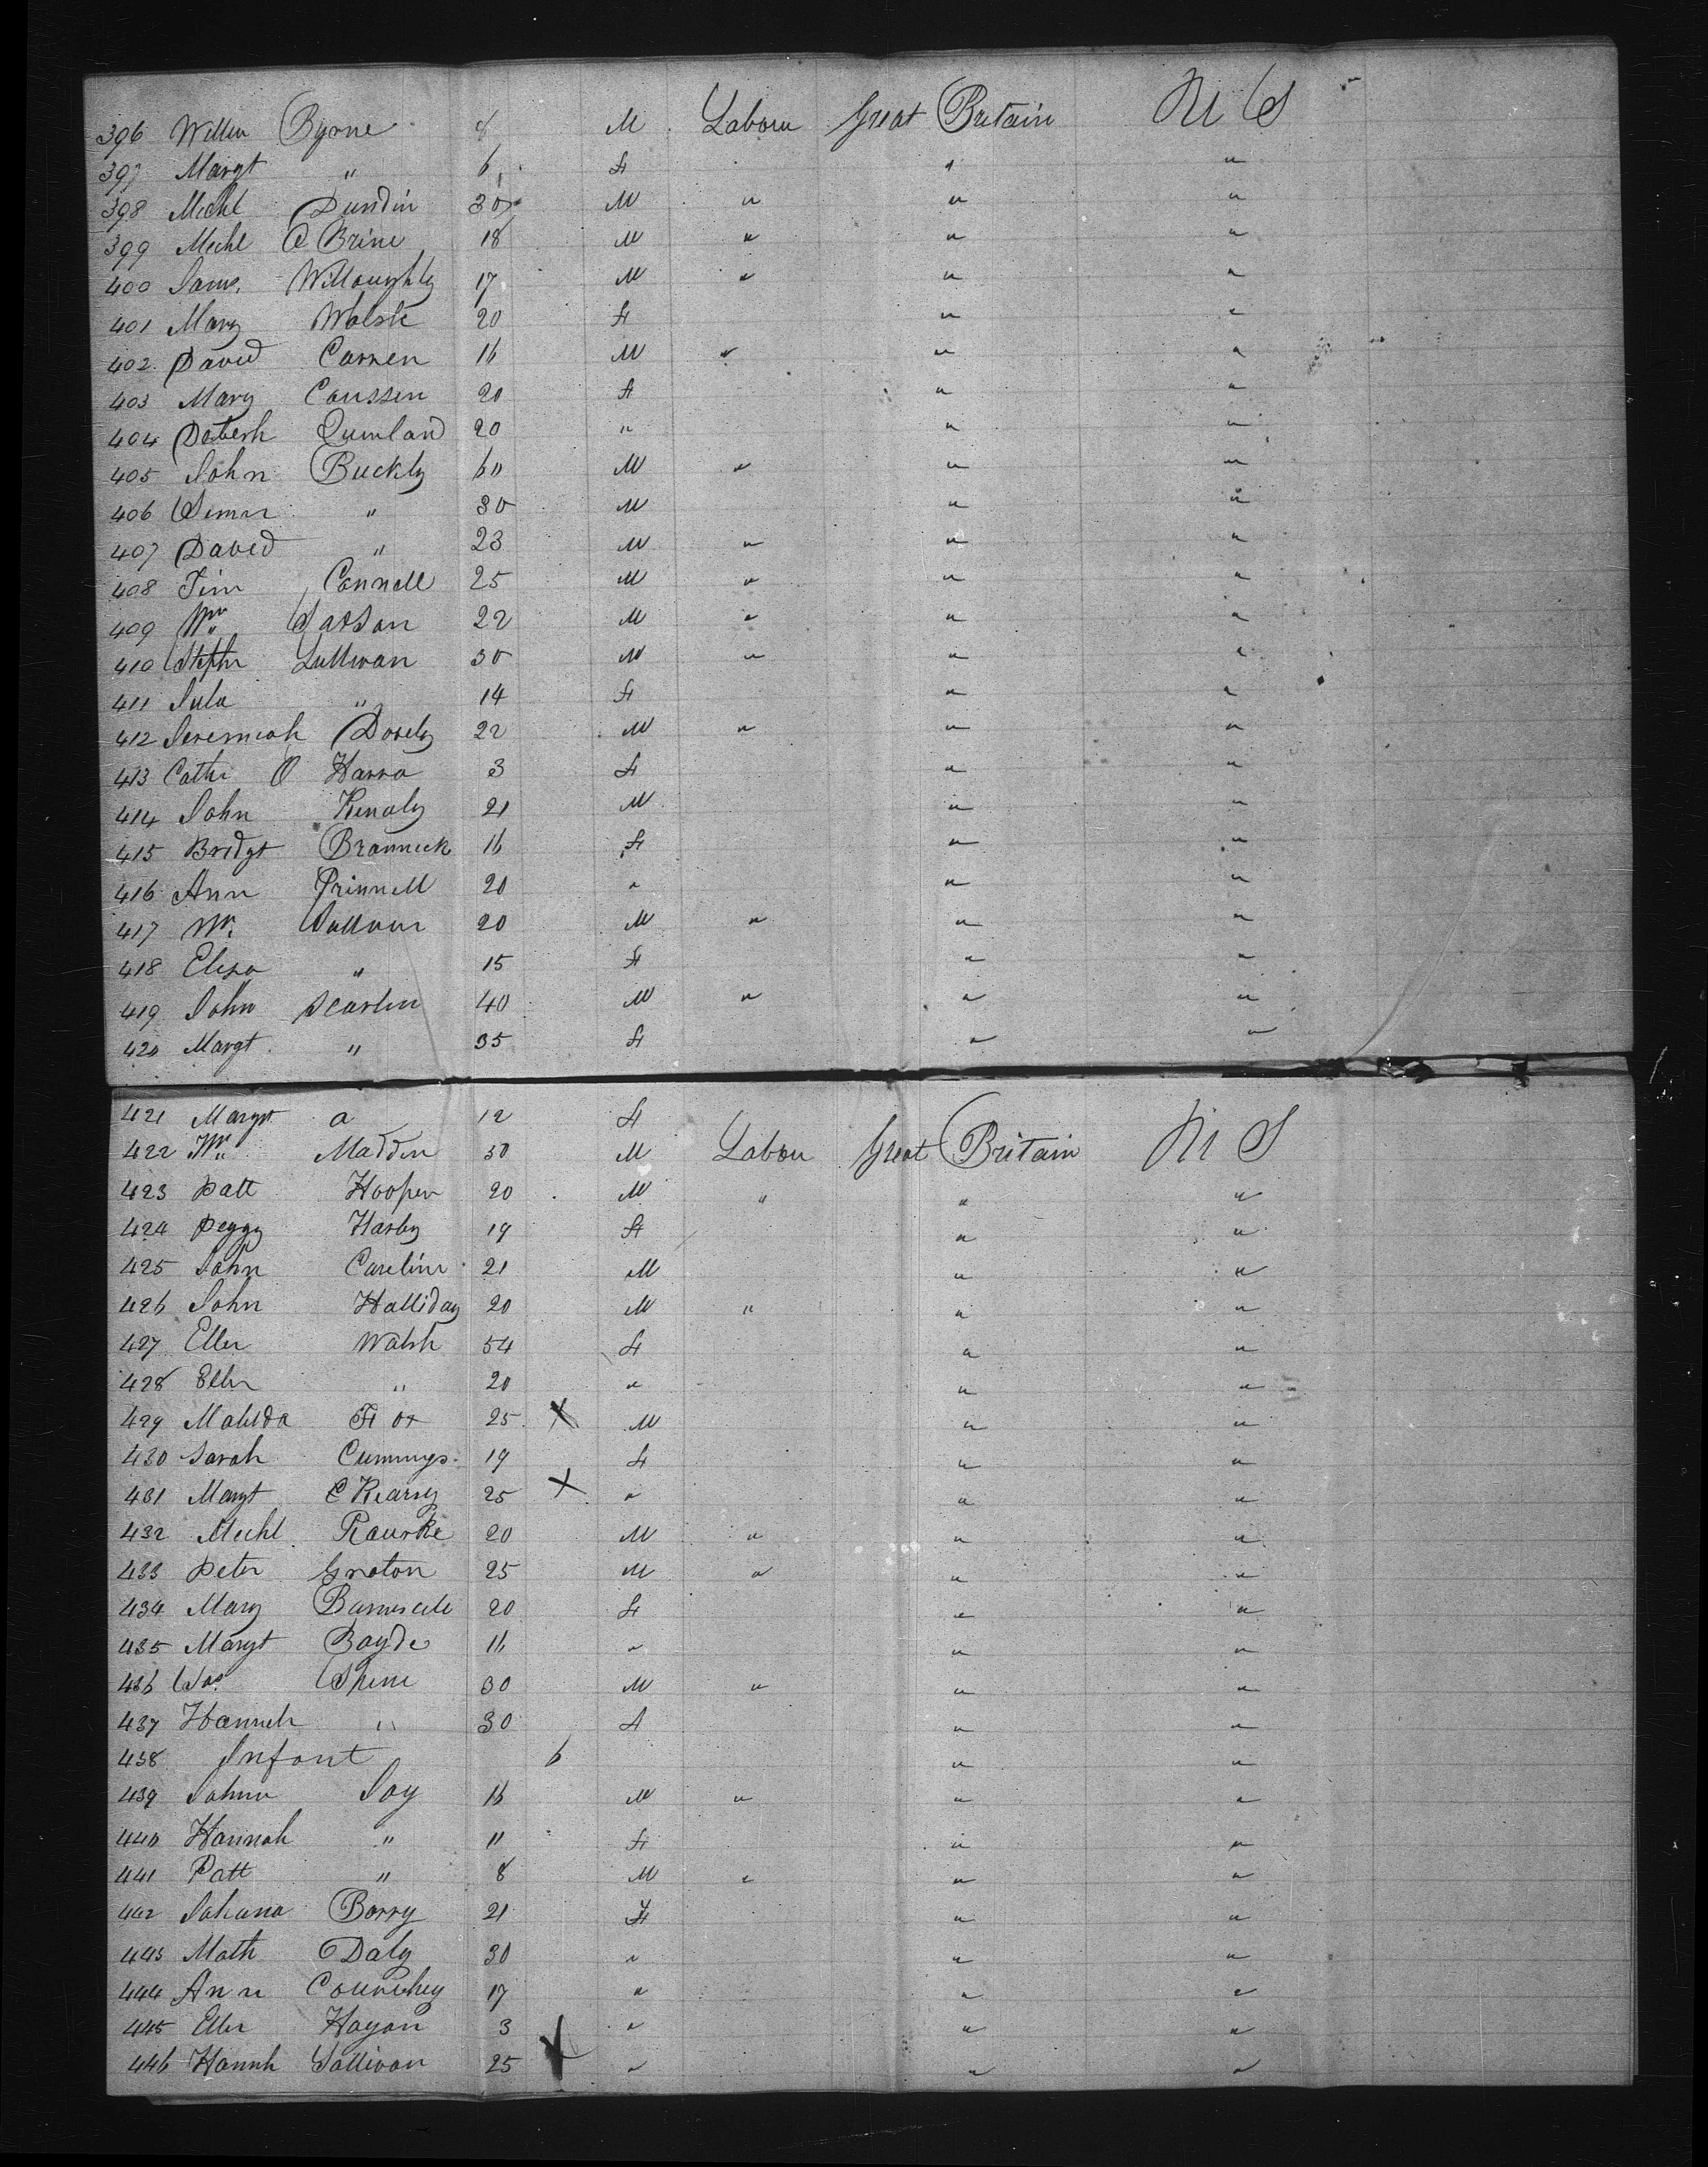 396 Willm Byrne 8 M Labour Great Britain U S
397 Margt " 6 F " "
398 Michl Dundin 30 M " " "
399 Michl O Brine 18 M " " "
400 James Willoughby 17 M " " "
401 Mary Walsh 20 F " "
402 David Carren 16 M " " "
403 Mary Caussen 20 F " "
404 Quinland 20 " " "
405 John Buckly 60 M " " "
406 Simon " 30 M " "
407 David " 23 M " " "
408 Tim Connell 25 M " " "
409 Wm Satson 22 M " " "
410 Stephn Sullivan 30 M " " "
411 Jula " 14 F " "
412 Jeremiah Dorely 22 M " " "
413 Cathr O Harra 3 F " "
414 John Kenaly 21 M " "
415 Bridgt Brannick 16 F " "
416 Ann Prinnell 20 " " "
417 Wm Sullivan 20 M " " "
418 Eliza " 15 F " "
419 John Scarlin 40 M " " "
420 Margt " 35 F " "
421 Margt a 12 F
422 Wm Madden 50 M Labour Great Britain U S
423 Patt Hooper 20 M " " "
424 Peggy Harby 19 F " "
425 John Careline 21 M " "
426 John Halliday 20 M " " "
427 Ellen Walsh 54 F " "
428 Ellen " 20 " " "
429 Matilda Fox 25 X M " "
430 Sarah Cummings 19 F " "
431 Margt C Kearny 25 X " " "
432 Michl Rourke 20 M " " "
433 Peter Groton 25 M " " "
434 Mary 20 F " "
435 Margt Boyde 16 " " "
436 Jas Shine 30 M " " "
437 Hannah " 30 F " "
438 Infant 6 " "
439 Johnn Joy 16 M " " "
440 Hannah " 11 F " "
441 Patt " 8 M " " "
442 Johana Barry 21 F " "
443 Math Daly 30 " " "
444 Ann 17 " " "
445 Ellen Hogan 3 " " "
446 Hannh Sullivan 25 X " " "